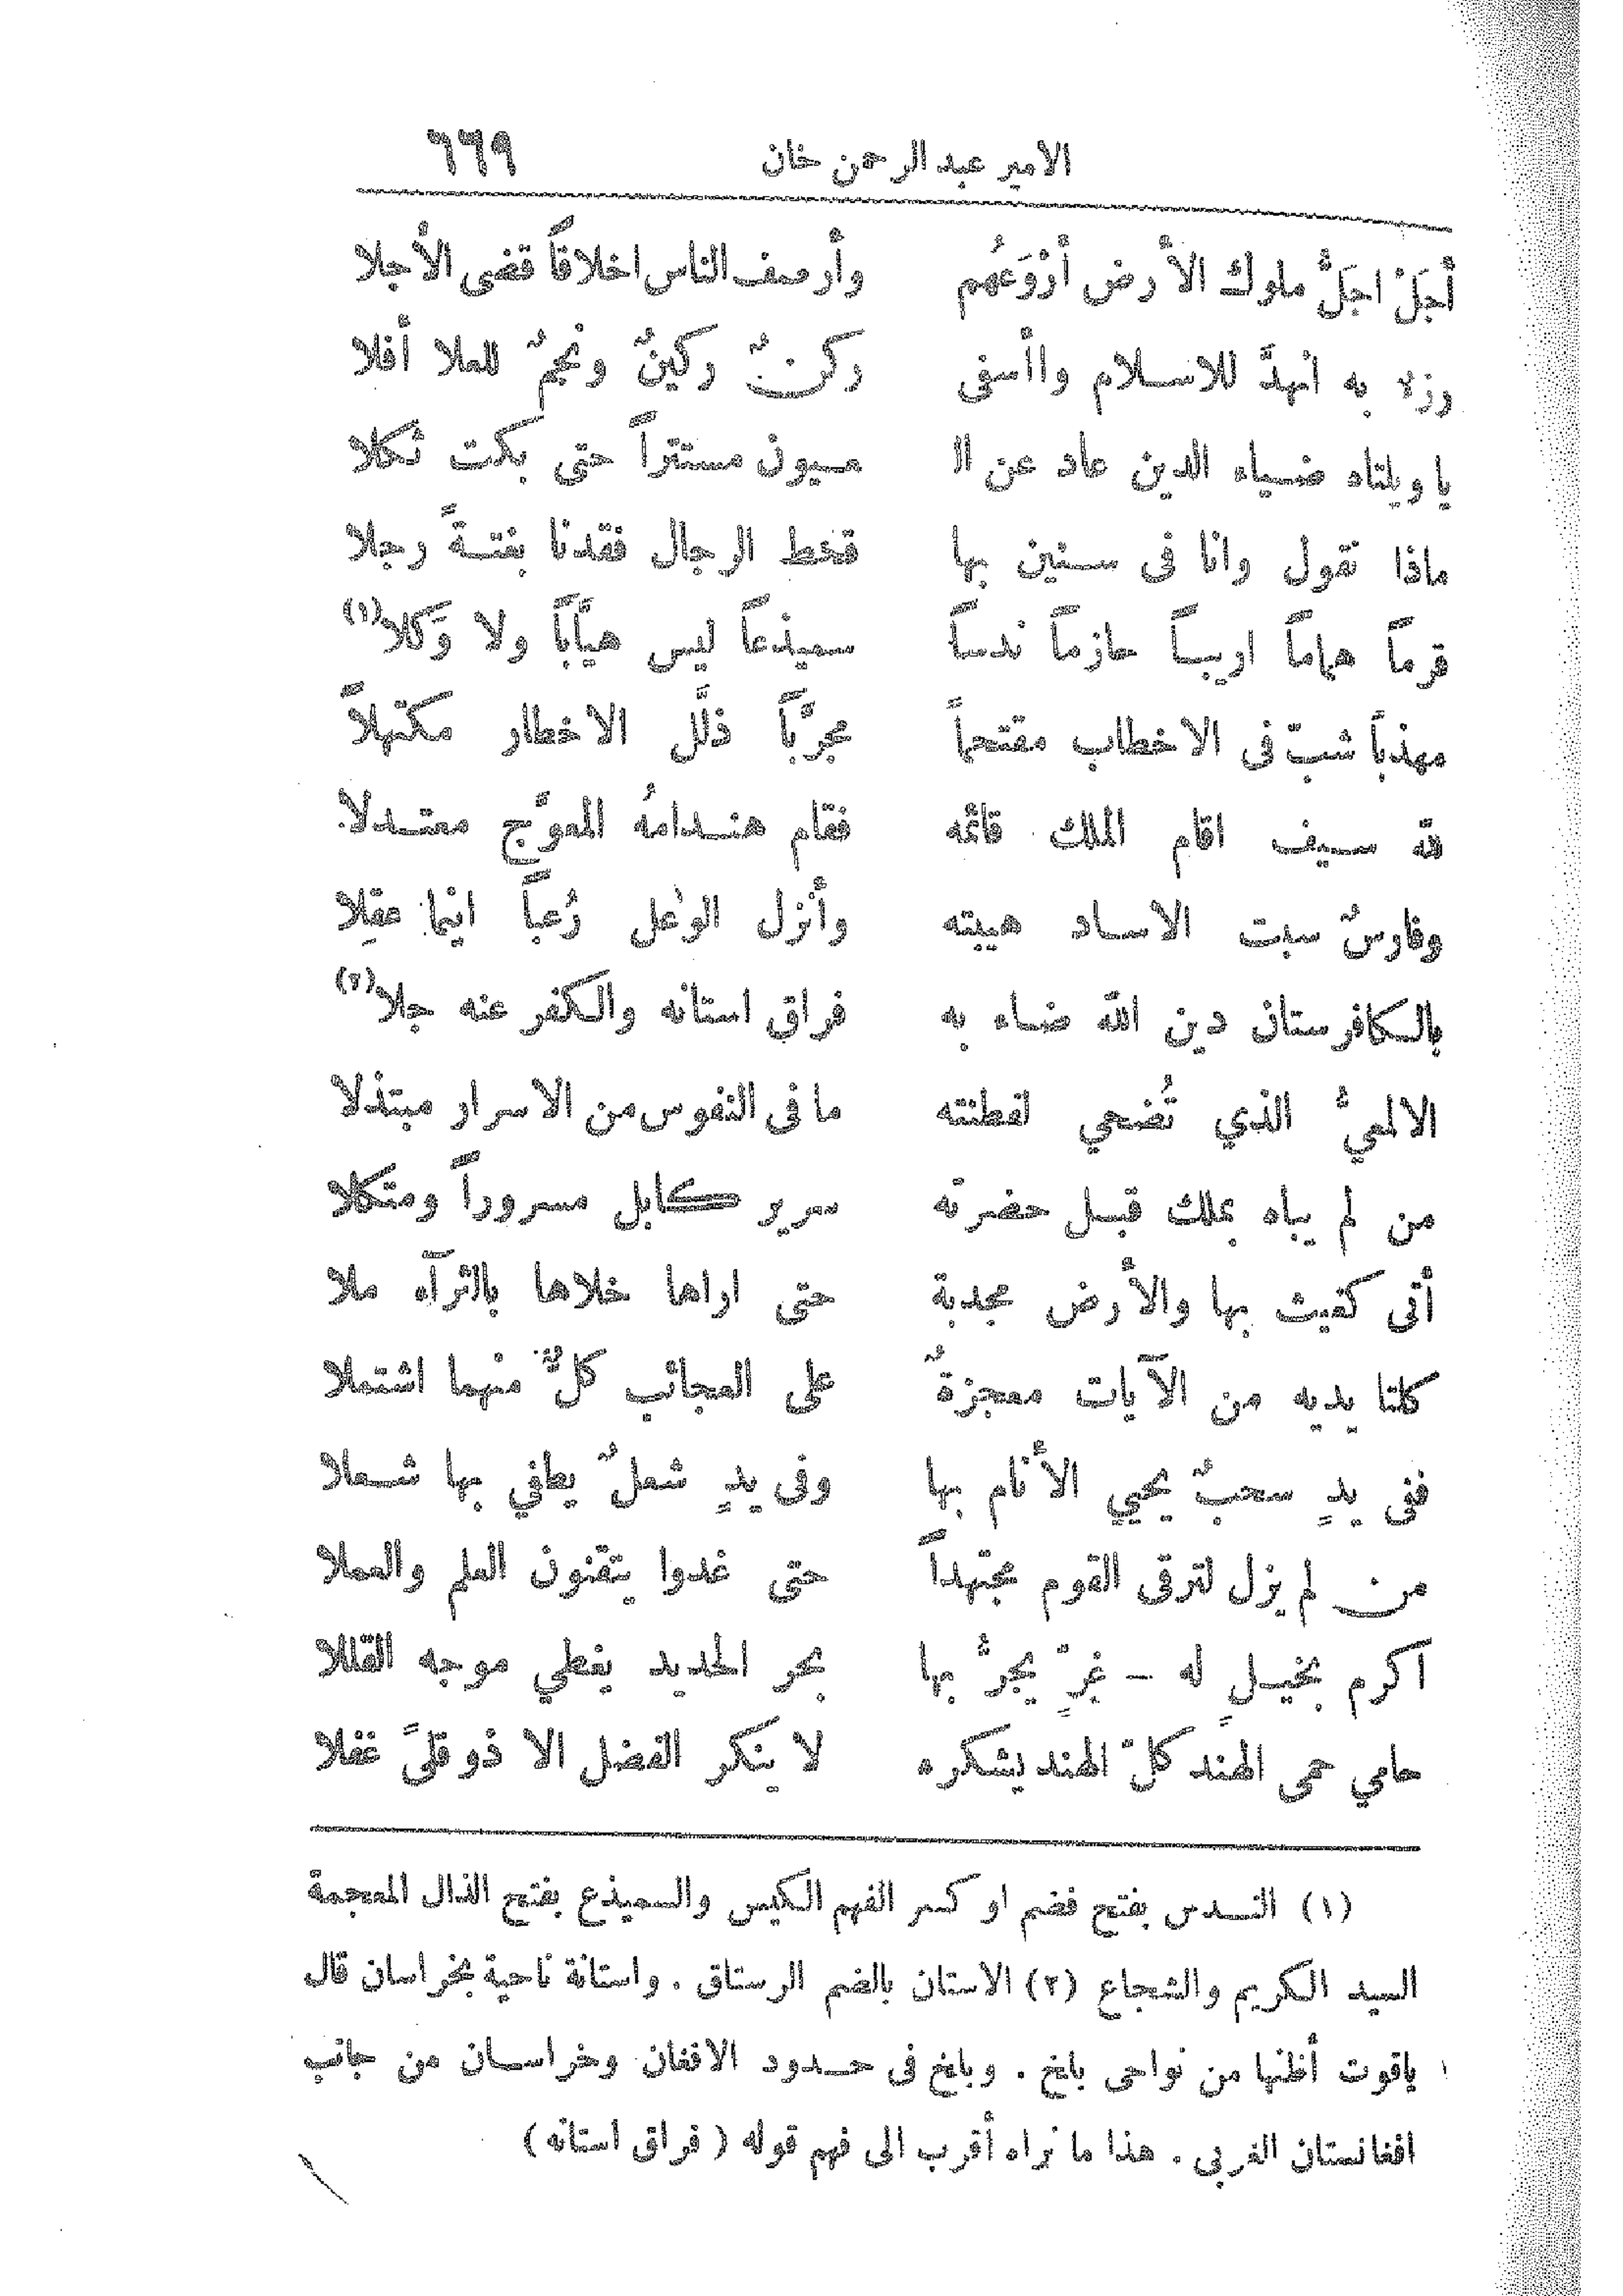 الامير عبد الرحمن خان ٦٦٩
أجَلْ اجَلُّ ملوك الأرض أرْوَعُهم وأرصف الناس اخلاقاً قضى الأجلا
رزء به انهدَّ للاسلام واأسفى ركنٌ ركينٌ ونجمٌ للعلا أفلا
يا ويلتاه ضياء الدين عاد عن ال عيون مستتراً حتى بكت ثكلا
ماذا نقول وانا فى سنين بها قحط الرجال فقدنا بغتةً رجلا
قرماً هماماً اريباً حازماً ندساً سميذعاً ليس هيَّاباً ولا وَكلا (١)
مهذباً شبّ فى الاخطاب مقتحماً مجرَّباً ذلَّل الاخطار مكتهلاً
لله سيف اقام الملك قائمه فقام هندامهُ المعوَّج معتدلا
وفارسٌ سبت الاساد هيبته وأنزل الوعل رُعباً اينما عقِلا
بالكافرستان دين الله ضاء به فراق استانه والكفر عنه جلا (٢)
الالمعيُّ الذي تُضحي لفطنته ما فى النفوس من الاسرار مبتذلا
من لم يباه بملك قبل حضرته سرير كابل مسروراً ومتكلا
أتى كغيث بها والأرض مجدبة حتى اراها خلاها بالثرآء ملا
كلتا يديه من الآيات معجزةٌ على العجائب كلٌّ منهما اشتملا
ففى يدٍ سحبٌ يحيي الأنام بها وفى يدٍ شعلٌ يطفي بها شعلا
من لم يزل لترقى القوم مجتهداً حتى غدوا يتقنون العلم والعملا
اكرم بخيلٍ له – غرٍّ يجرُّ بها بحر الحديد يغطي موجه القللا
حامي حمى الهند كلّ الهند يشكره لا ينكر الفضل الا ذو قلىً غفلا
(١) الندس بفتح فضم او كسر الفهم الكيس والسميذع بفتح الذال المعجمة
السيد الكريم والشجاع (٢) الاستان بالضم الرستاق . واستانة ناحية بخراسان قال
ياقوت أظنها من نواحى بلخ . وبلخ فى حدود الافغان وخراسان من جانب
افغانستان الغربى . هذا ما نراه أقرب الى فهم قوله ( فراق استانه )